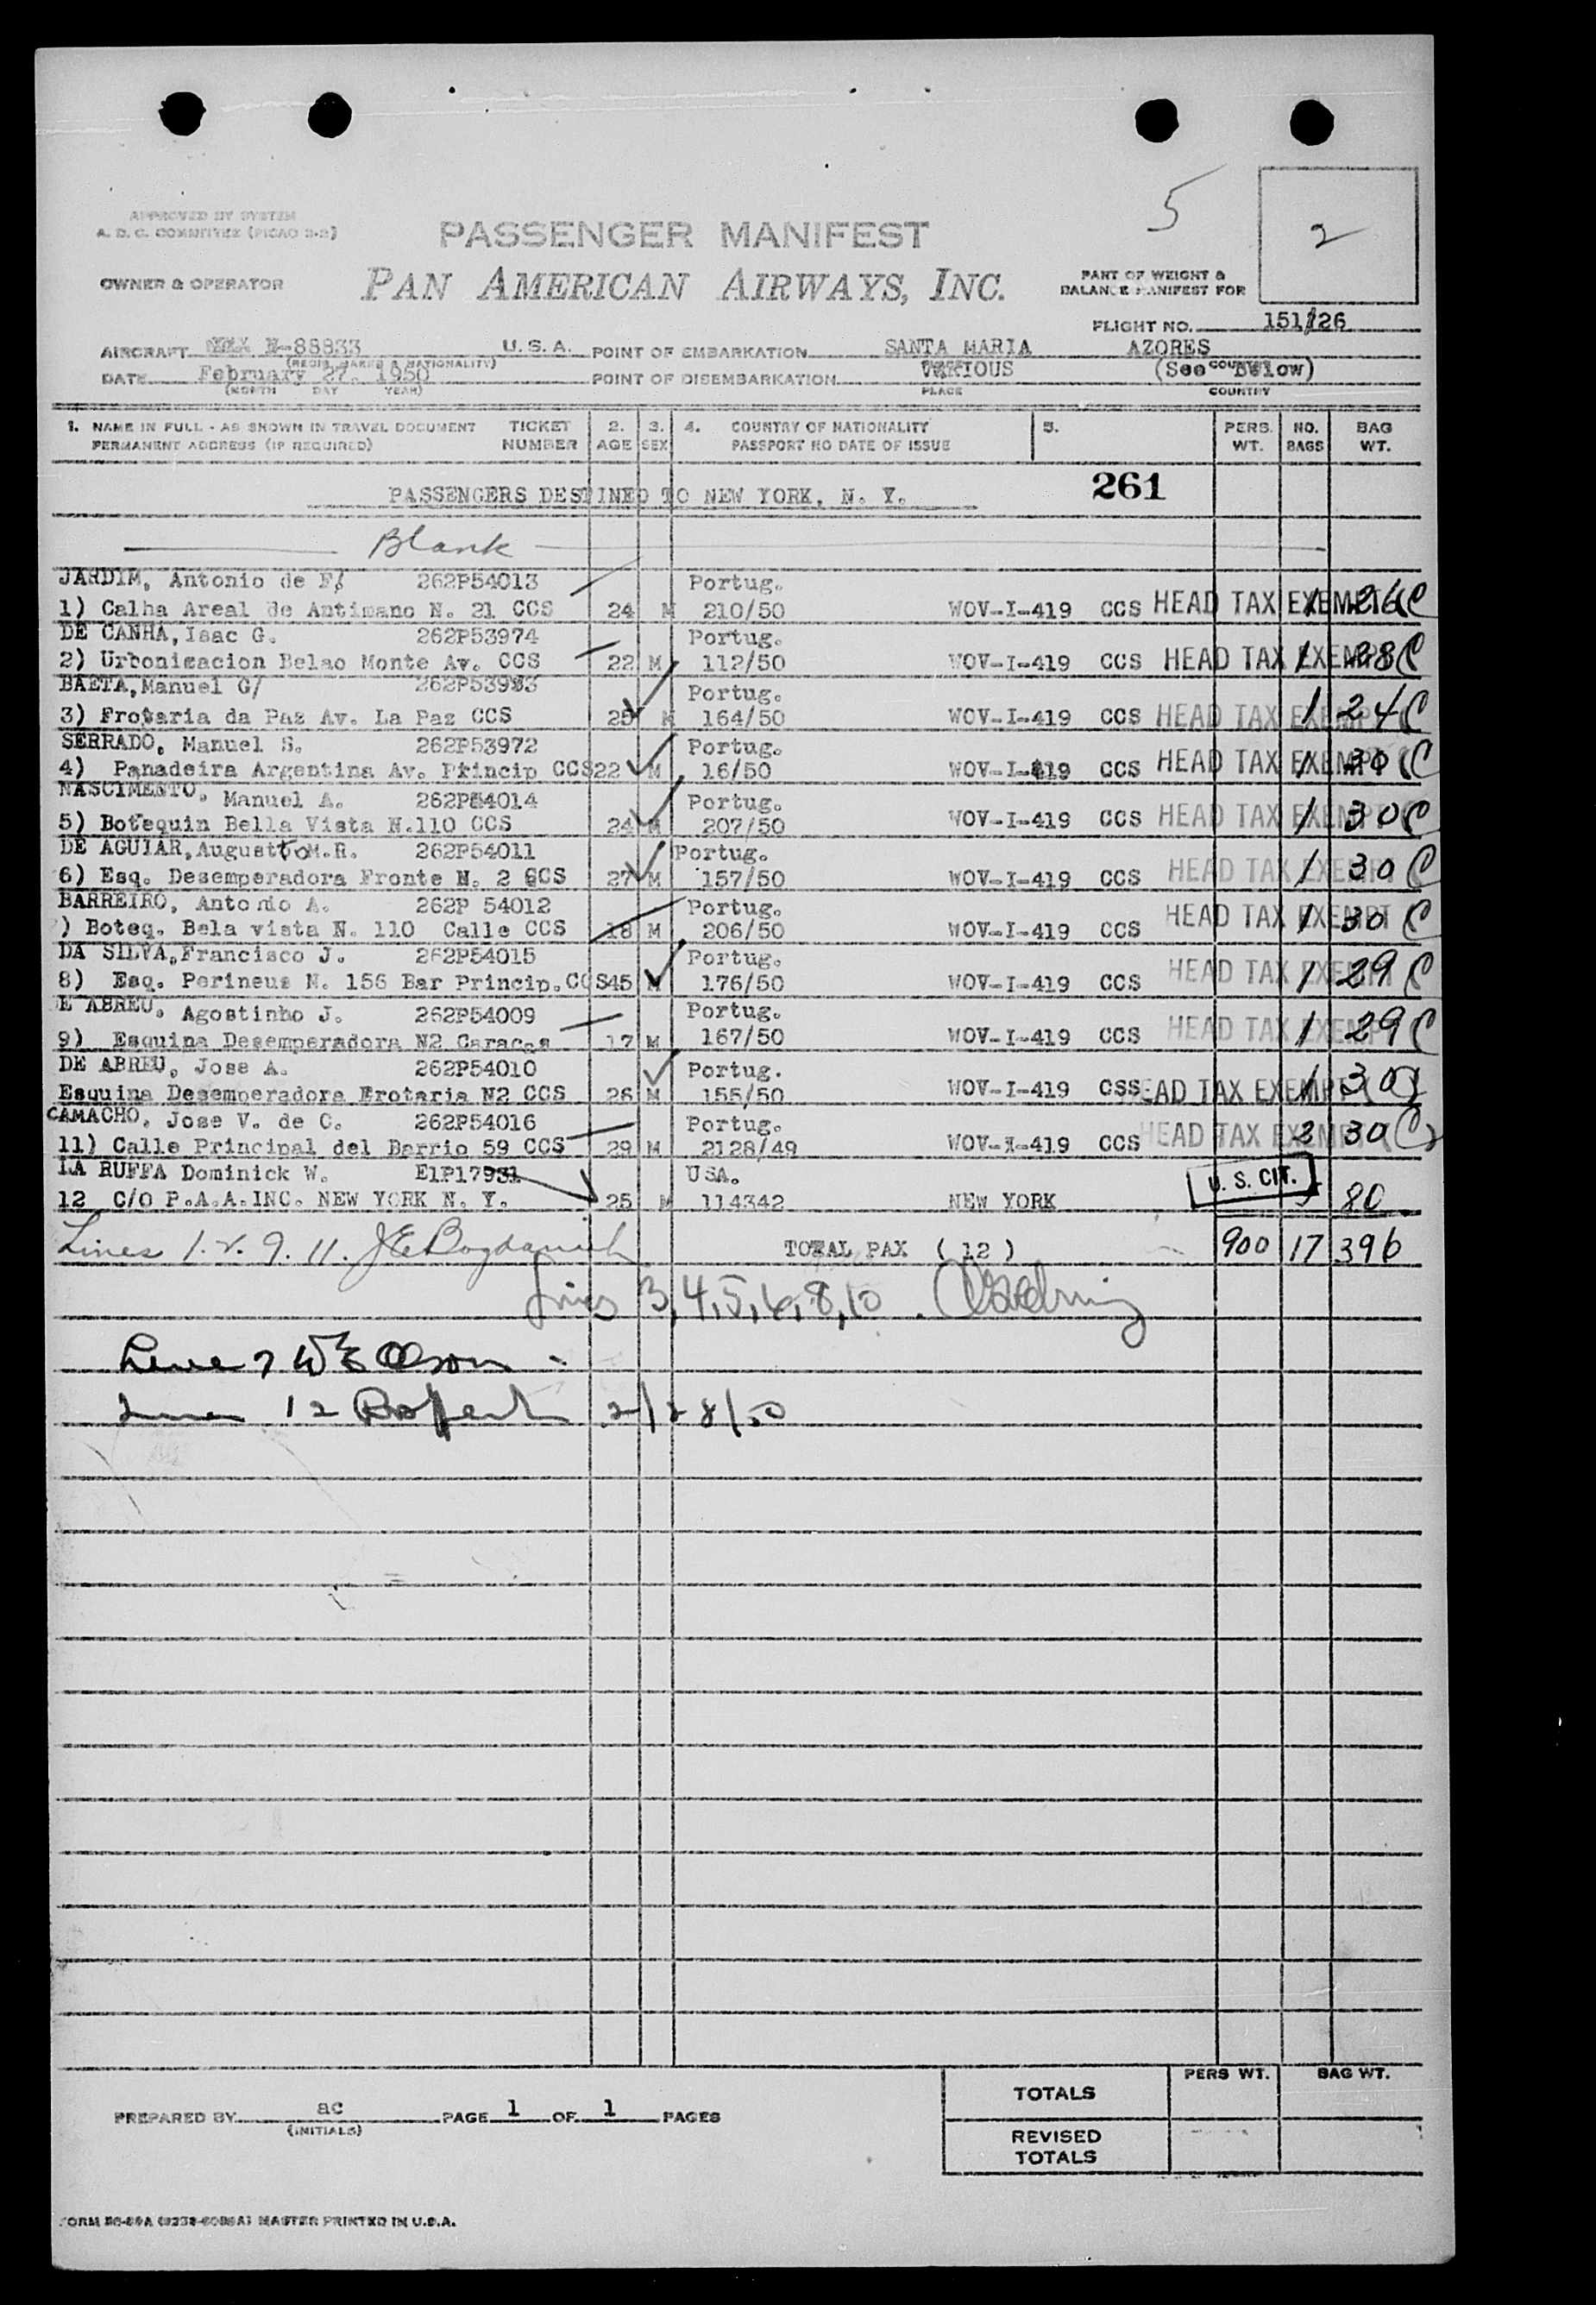 5
2
APPROVED BY SYSTEM
A. D. C. COMMITTEE (PICAO 2-3)
PASSENGER MANIFEST
OWNER & OPERATOR PAN AMERICAN AIRWAYS, INC.
PART OF WEIGHT &
BALANCE MANIFEST FOR
FLIGHT NO. 151/126
AIRCRAFT N-88833 U. S. A. POINT OF EMBARKATION SANTA MARIA AZORES
DATE February 27, 1950 POINT OF DISEMBARKATION VARIOUS (See Below)
(MONTH DAY YEAR) PLACE COUNTRY
1. NAME IN FULL - AS SHOWN IN TRAVEL DOCUMENT TICKET 2. 3. 4. COUNTRY OF NATIONALITY 5. PERS. NO. BAG
PERMANENT ADDRESS (IF REQUIRED) NUMBER AGE SEX PASSPORT NO DATE OF ISSUE WT. BAGS WT.
PASSENGERS DESTINED TO NEW YORK, N. Y. 261
Blank
JARDIM, Antonio de F/ 262P54013 Portug.
1) Calha Areal de Antimano N. 21 CCS 24 M 210/50 WOV-I-419 CCS HEAD TAX EXEMPT 1 26 C
DE CANHA, Isac G. 262P53974 Portug.
2) Urbonisacion Belao Monte Av. CCS 22 M 112/50 WOV-I-419 CCS HEAD TAX EXEMPT 1 28 C
BAETA, Manuel G/ 262P53983 Portug.
3) Frotaria da Paz Av. La Paz CCS 25 M 164/50 WOV-I-419 CCS HEAD TAX EXEMPT 1 24 C
SERRADO, Manuel S. 262P53972 Portug.
4) Panadeira Argentina Av. Princip CCS 22 M 16/50 WOV-I-419 CCS HEAD TAX EXEMPT 1 30 C
NASCIMENTO, Manuel A. 262P54014 Portug.
5) Botequin Bella Vista N.110 CCS 24 M 207/50 WOV-I-419 CCS HEAD TAX EXEMPT 1 30 C
DE AGUIAR, Augusto M.R. 262P54011 Portug.
6) Esq. Desemperadora Fronte N. 2 CCS 27 M 157/50 WOV-I-419 CCS HEAD TAX EXEMPT 1 30 C
BARREIRO, Antonio A. 262P 54012 Portug.
) Boteq. Bela vista N. 110 Calle CCS 18 M 206/50 WOV-I-419 CCS HEAD TAX EXEMPT 1 30 C
DA SILVA, Francisco J. 262P54015 Portug.
8) Esq. Perineus N. 156 Bar Princip. CCS 45 M 176/50 WOV-I-419 CCS HEAD TAX EXEMPT 1 29 C
E ABREU, Agostinho J. 262P54009 Portug.
9) Esquina Desemperadora N2 Caracas 17 M 167/50 WOV-I-419 CCS HEAD TAX EXEMPT 1 29 C
DE ABREU, Jose A. 262P54010 Portug.
Esquina Desemperadora Frotaria N2 CCS 26 M 155/50 WOV-I-419 CSS HEAD TAX EXEMPT 1 30 C
CAMACHO, Jose V. de C. 262P54016 Portug.
11) Calle Principal del Barrio 59 CCS 29 M 2128/49 WOV-I-419 CCS HEAD TAX EXEMPT 2 30 C
LA RUFFA Dominick W. E1P17931 USA.
12 C/O P.A.A.INC. NEW YORK N. Y. 25 M 114342 NEW YORK U. S. CIT. 5 80
Lines 1. 2. 9. 11. TOTAL PAX ( 12 ) 900 17 396
Lines 3, 4, 5, 6, 8, 10
Line 7 W E Olson
Line 12 2/28/50
PREPARED BY ac PAGE 1 OF 1 PAGES
(INITIALS)
PERS WT. BAG WT.
TOTALS
REVISED
TOTALS
MASTER PRINTED IN U.S.A.